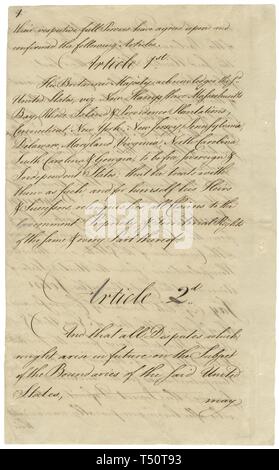 4
their respective full Powers have agreed upon and
confirmed the following Articles.
Article 1st
His Britannic Majesty acknowledges the sd
United States, viz New Hampshire Massachusetts
Bay, Rhode Island & Providence Plantations
Connecticut, New York, New Jersey, Pennsylvania
Delaware, Maryland, Virginia, North Carolina
South Carolina & Georgia, to be free sovereign &
Independent States; that he treats with
them as such; and for himself his Heirs
& Successors relinquishes all Claims to the
Government Propriety & Territorial Rights
of the same & every Part thereof.
Article 2d
And that all Disputes which
might arise in future on the Subject
of the Boundaries of the said United
States, may
alamy
Image ID: T50T93
www.alamy.com